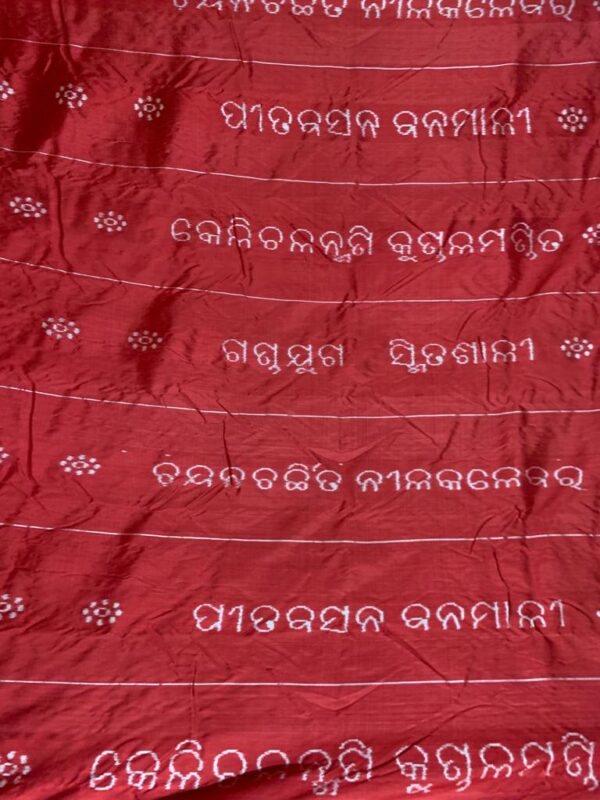 ଚଯନଚର୍ଚ୍ଚିତ ନୀଳକଳେବର
ପୀତବସନ ବନମାଳୀ
କେଳିଚଳନ୍ମଣି କୁଣ୍ଡଳମଣ୍ଡିତ
ଗଣ୍ଡଯୁଗ ସ୍ମିତଶାଳୀ
ଚଯନଚର୍ଚ୍ଚିତ ନୀଳକଳେବର
ପୀତବସନ ବନମାଳୀ
କେଳିଚଳନ୍ମଣି କୁଣ୍ଡଳମଣ୍ଡି